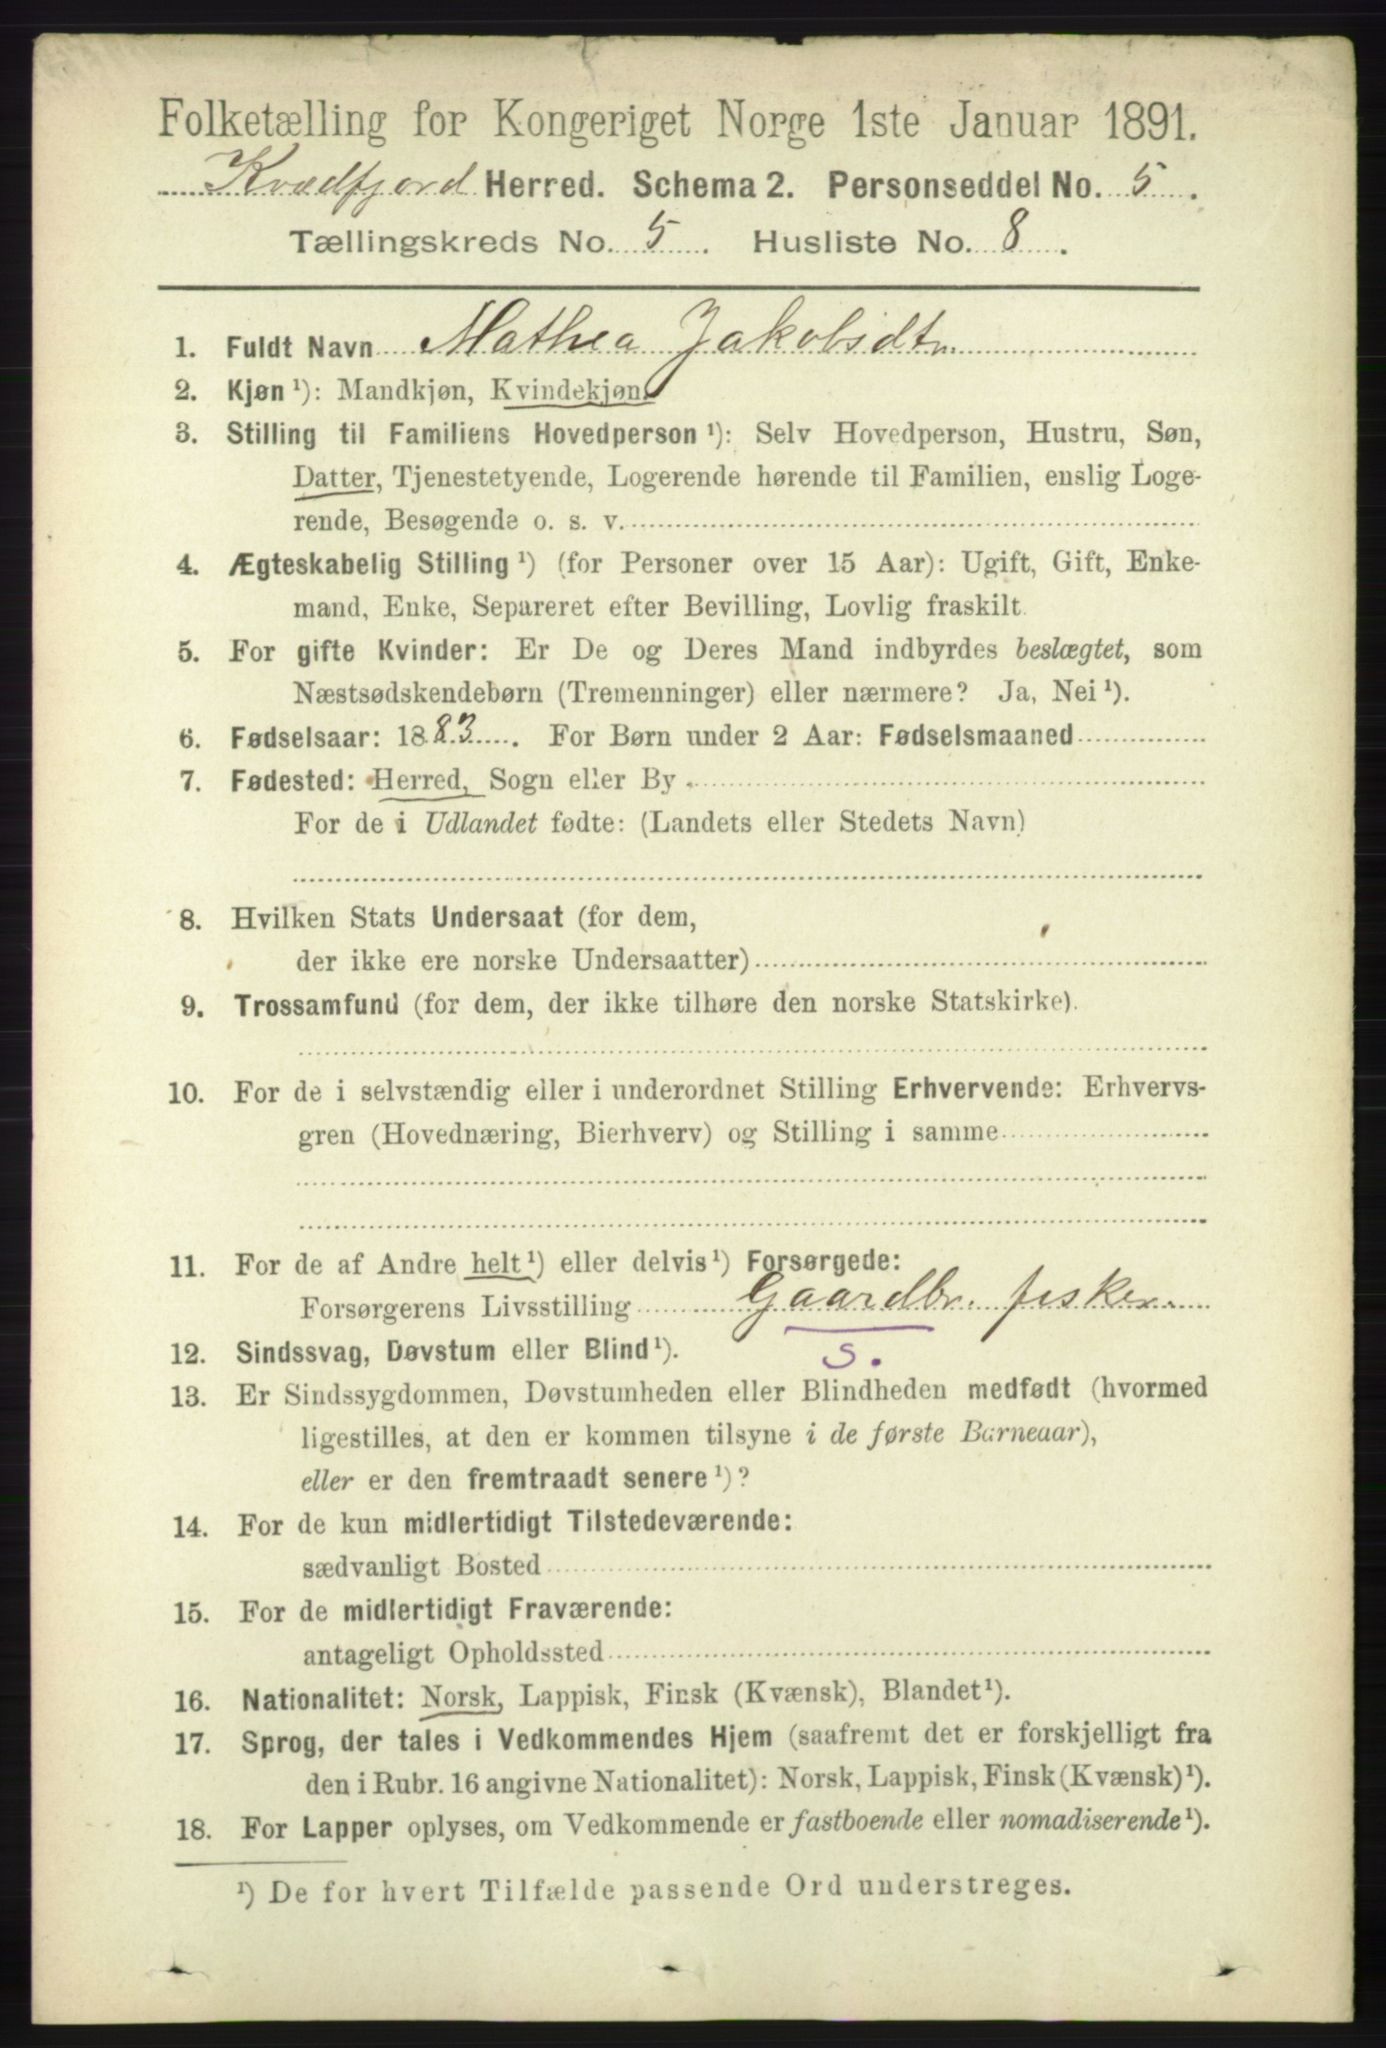 Folketælling for Kongeriget Norge 1ste Januar 1891.
Kvædfjord Herred. Schema 2. Personseddel No. 5.
Tællingskreds No. 5. Husliste No. 8.
1. Fuldt Navn Mathea Jakobsdtr
2. Kjøn ¹): Mandkjøn, Kvindekjøn.
3. Stilling til Familiens Hovedperson ¹): Selv Hovedperson, Hustru, Søn,
Datter, Tjenestetyende, Logerende hørende til Familien, enslig Loge-
rende, Besøgende o. s. v.
4. Ægteskabelig Stilling ¹) (for Personer over 15 Aar): Ugift, Gift, Enke-
mand, Enke, Separeret efter Bevilling, Lovlig fraskilt.
5. For gifte Kvinder: Er De og Deres Mand indbyrdes beslægtet, som
Næstsødskendebørn (Tremenninger) eller nærmere? Ja, Nei ¹).
6. Fødselsaar: 1883. For Børn under 2 Aar: Fødselsmaaned
7. Fødested: Herred, Sogn eller By
For de i Udlandet fødte: (Landets eller Stedets Navn)
8. Hvilken Stats Undersaat (for dem,
der ikke ere norske Undersaatter)
9. Trossamfund (for dem, der ikke tilhøre den norske Statskirke).
10. For de i selvstændig eller i underordnet Stilling Erhvervende: Erhvervs-
gren (Hovednæring, Bierhverv) og Stilling i samme
11. For de af Andre helt ¹) eller delvis ¹) Forsørgede:
Forsørgerens Livsstilling Gaardbr. fisker.
12. Sindssvag, Døvstum eller Blind ¹). S.
13. Er Sindssygdommen, Døvstumheden eller Blindheden medfødt (hvormed
ligestilles, at den er kommen tilsyne i de første Barneaar),
eller er den fremtraadt senere ¹)?
14. For de kun midlertidigt Tilstedeværende:
sædvanligt Bosted
15. For de midlertidigt Fraværende:
antageligt Opholdssted
16. Nationalitet: Norsk, Lappisk, Finsk (Kvænsk), Blandet ¹).
17. Sprog, der tales i Vedkommendes Hjem (saafremt det er forskjelligt fra
den i Rubr. 16 angivne Nationalitet): Norsk, Lappisk, Finsk (Kvænsk) ¹).
18. For Lapper oplyses, om Vedkommende er fastboende eller nomadiserende ¹).
¹) De for hvert Tilfælde passende Ord understreges.